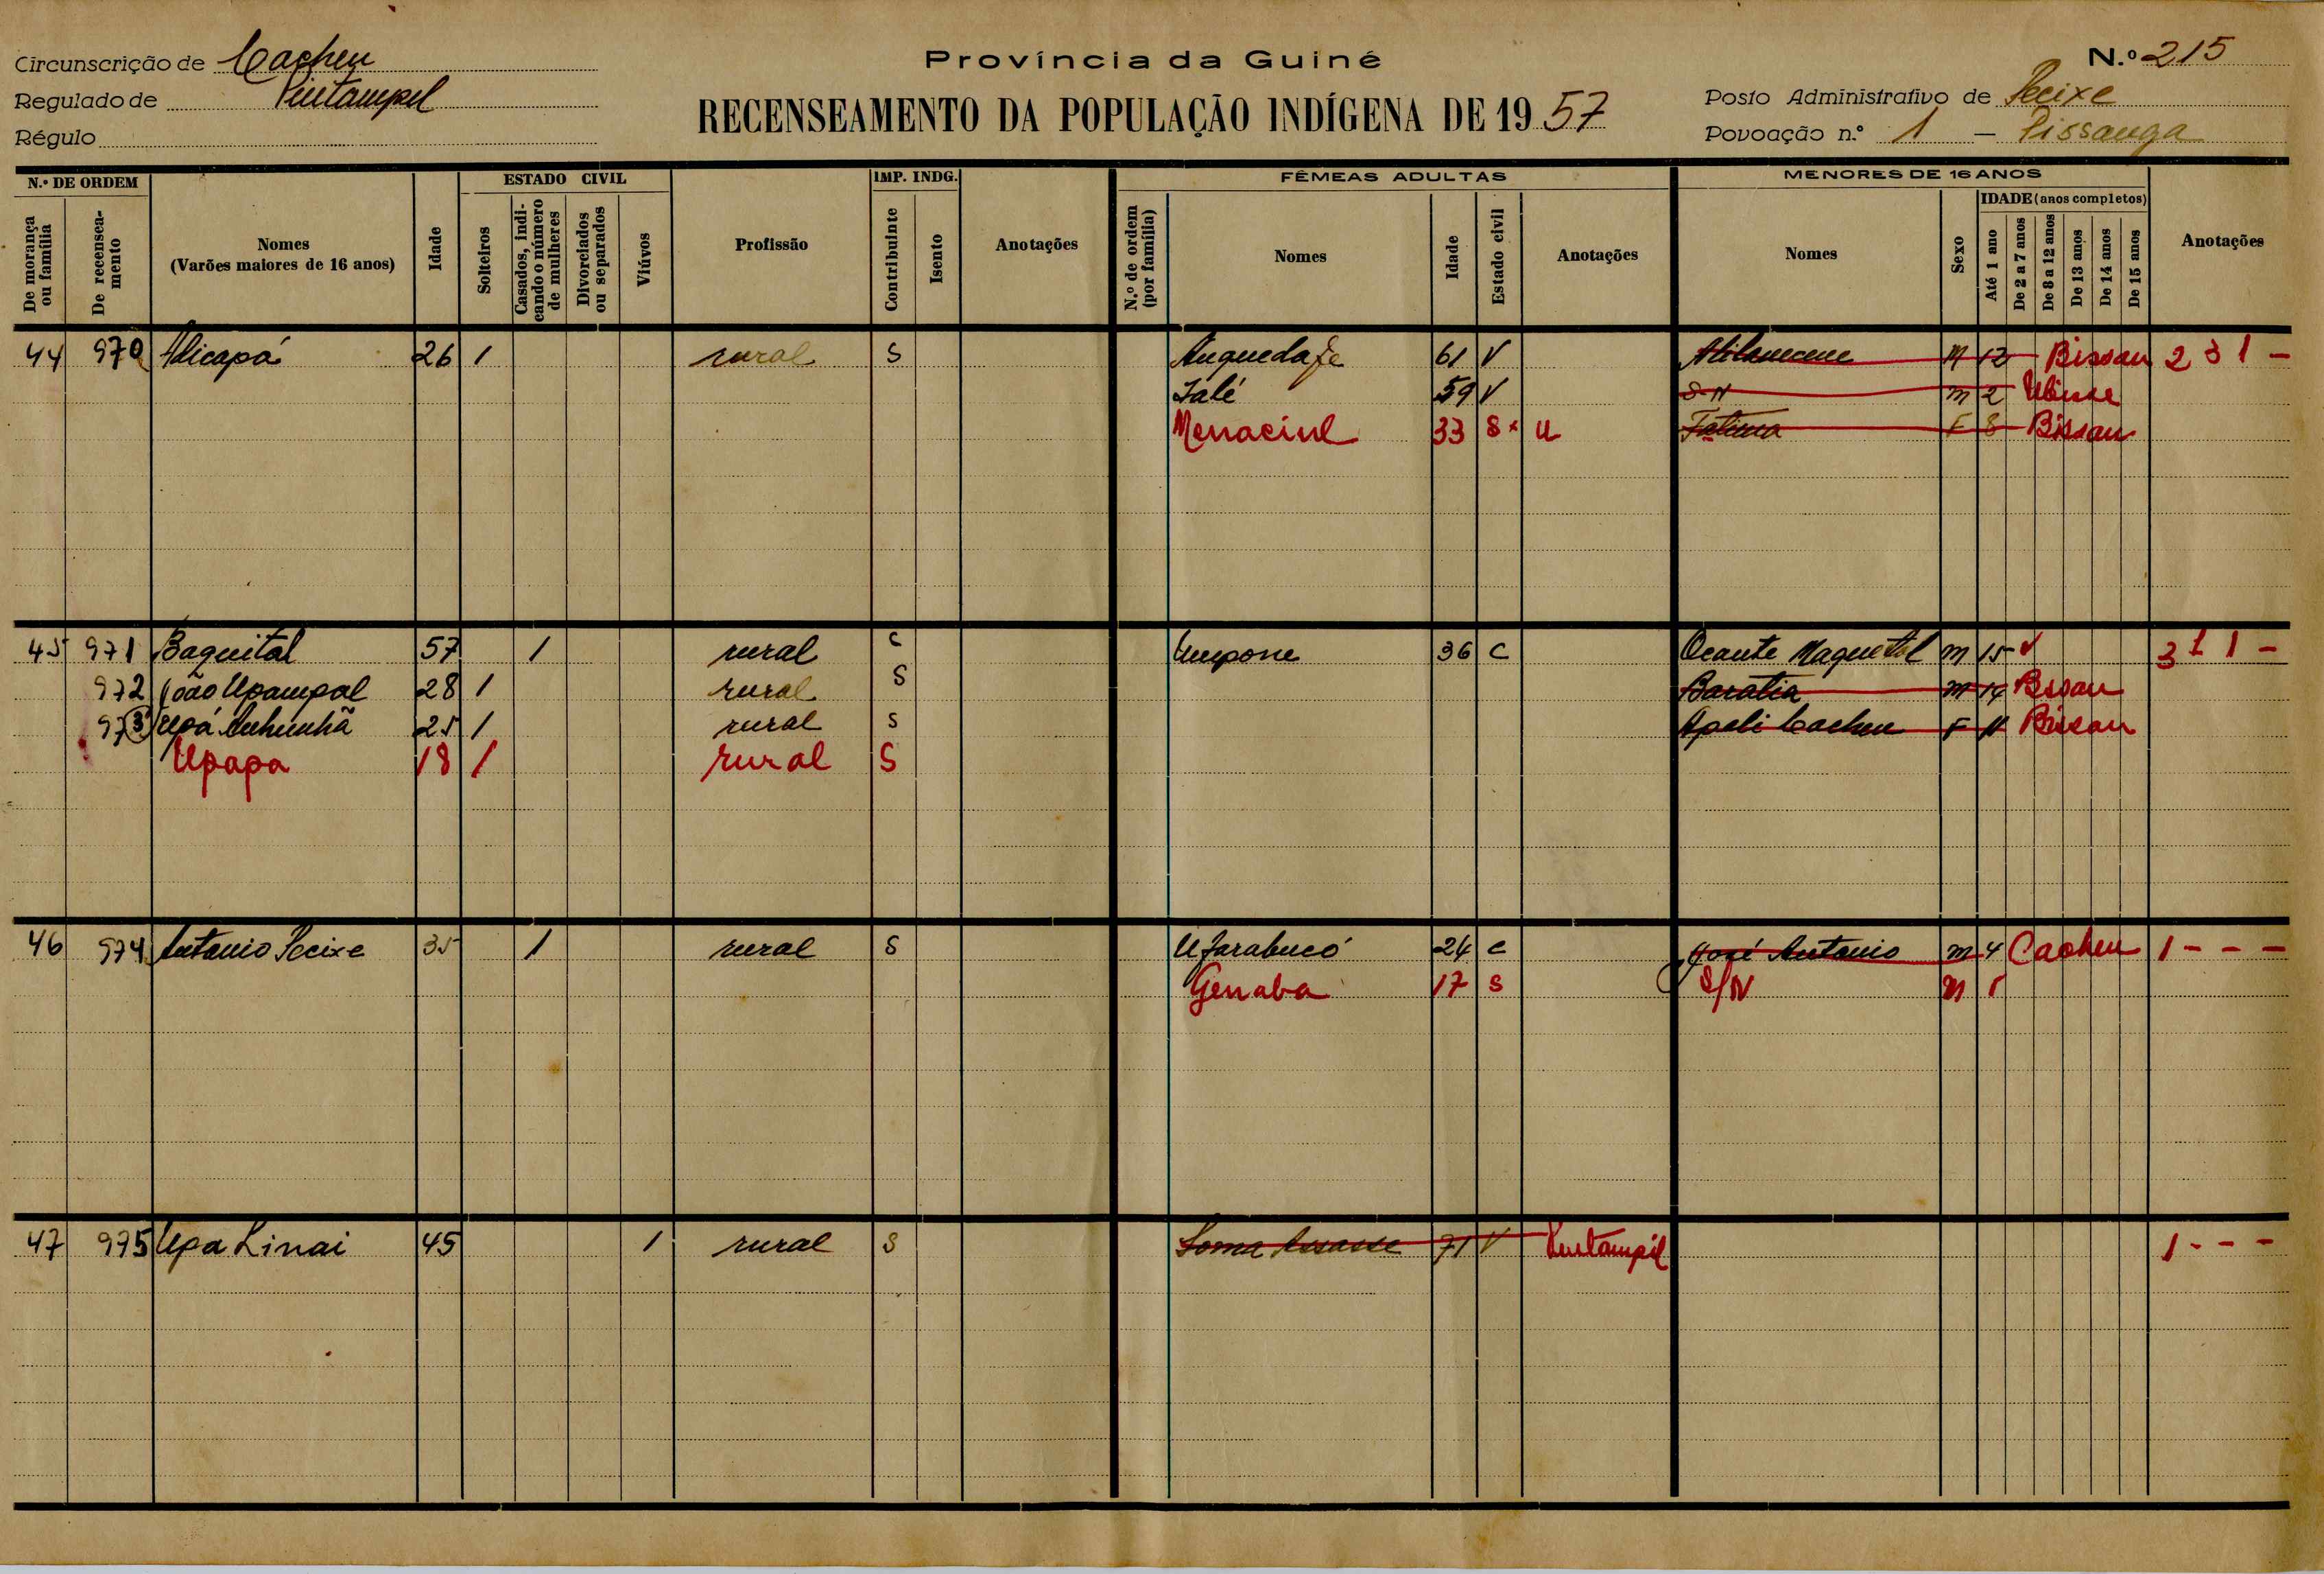 Circunscrição de Cacheu
Regulado de Pintampel
Régulo
Província da Guiné
RECENSEAMENTO DA POPULAÇÃO INDÍGENA DE 1957
N.º 215
Posto Administrativo de Pecixe
Povoação n.º 1 — Pissanga
N.º DE ORDEM
De morança ou família
De recenseamento
Nomes
(Varões maiores de 16 anos)
Idade
ESTADO CIVIL
Solteiros
Casados, indicando o número de mulheres
Divorciados ou separados
Viúvos
Profissão
IMP. INDG.
Contribuinte
Isento
Anotações
FÊMEAS ADULTAS
N.º de ordem (por família)
Nomes
Idade
Estado civil
Anotações
MENORES DE 16 ANOS
Nomes
Sexo
IDADE (anos completos)
Até 1 ano
De 2 a 7 anos
De 8 a 12 anos
De 13 anos
De 14 anos
De 15 anos
Anotações
44 970 Alicapá 26 1 rural S 61 V M 12 Bissau 2 3 1 -
Talé 59 V S N m 2
Menaciul 33 S x U Fatima F 8 Bissau
45 971 Baquital 57 1 rural C Umpone 36 C Ocante Naquetal m 15 V 3 1 1 -
972 João Upampal 28 1 rural S Baratia m 14 Bissau
973 Upá 25 1 rural S Apali Cacheu F 11 Bissau
Upapa 18 1 rural S
46 974 Antonio Pecixe 35 1 rural S Ufarabucó 24 C José Antonio m 4 Cacheu 1 - - -
Genaba 17 S S/N m 1
47 975 Upa Linai 45 1 rural S 71 V Pintampil 1 - - -